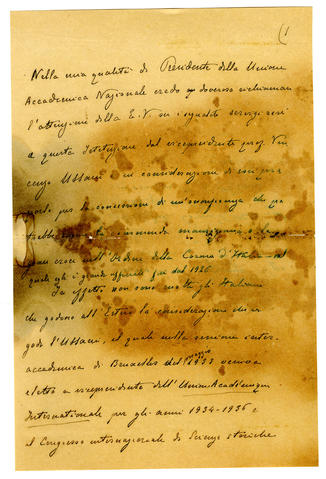 (1
Nella mia qualità di Presidente della Unione
Accademica Nazionale credo doveroso richiamare
l'attenzione della E.V. su i segnalati servigi resi
a questa Istituzione dal vicepresidente prof. Vin
cenzo Ussani e in considerazione di essi pro
porlo per la concessione di un'onorificenza che po
trebbe la commenda o il
gran croce nell'Ordine della Corona d'Italia
quale egli è grande ufficiale fin dal 1926
In effetti non sono molti gli Italiani
che godono all'Estero la considerazione che
gode l'Ussani, il quale nella sessione inter
accademica di Bruxelles del maggio 1933 veniva
eletto a vicepresidente dell'Union Académique
Internationale per gli anni 1934-1936 e
al Congresso internazionale di Scienze storiche